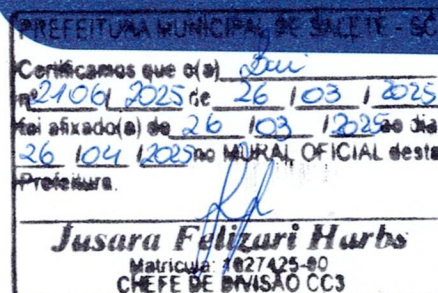 PREFEITURA MUNICIPAL DE SALETE - SC
Certificamos que o(a) Lei
nº 2106/ 2025 de 26 / 03 / 2025
foi afixado(a) do 26 / 03 / 2025 ao dia
26 / 04 / 2025 no MURAL OFICIAL desta
Prefeitura.
Jusara Felizari Harbs
Matrícula: 1827425-00
CHEFE DE DIVISÃO CC3